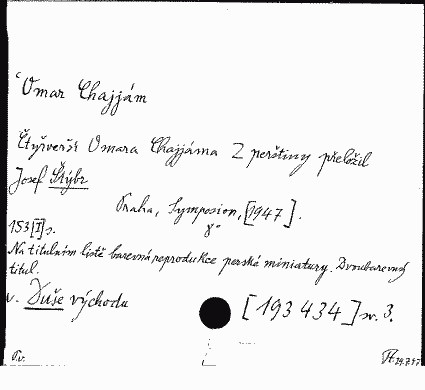 ʿOmar Chajjám
Čtyřverší Omara Chajjáma Z perštiny přeložil
Josef Štýbr
Praha, Symposion, [1947].
8°
153 [I] s.
Na titulním listě barevná reprodukce perské miniatury. Dvoubarevný
titul.
v. Duše východu
[193 434] sv. 3.